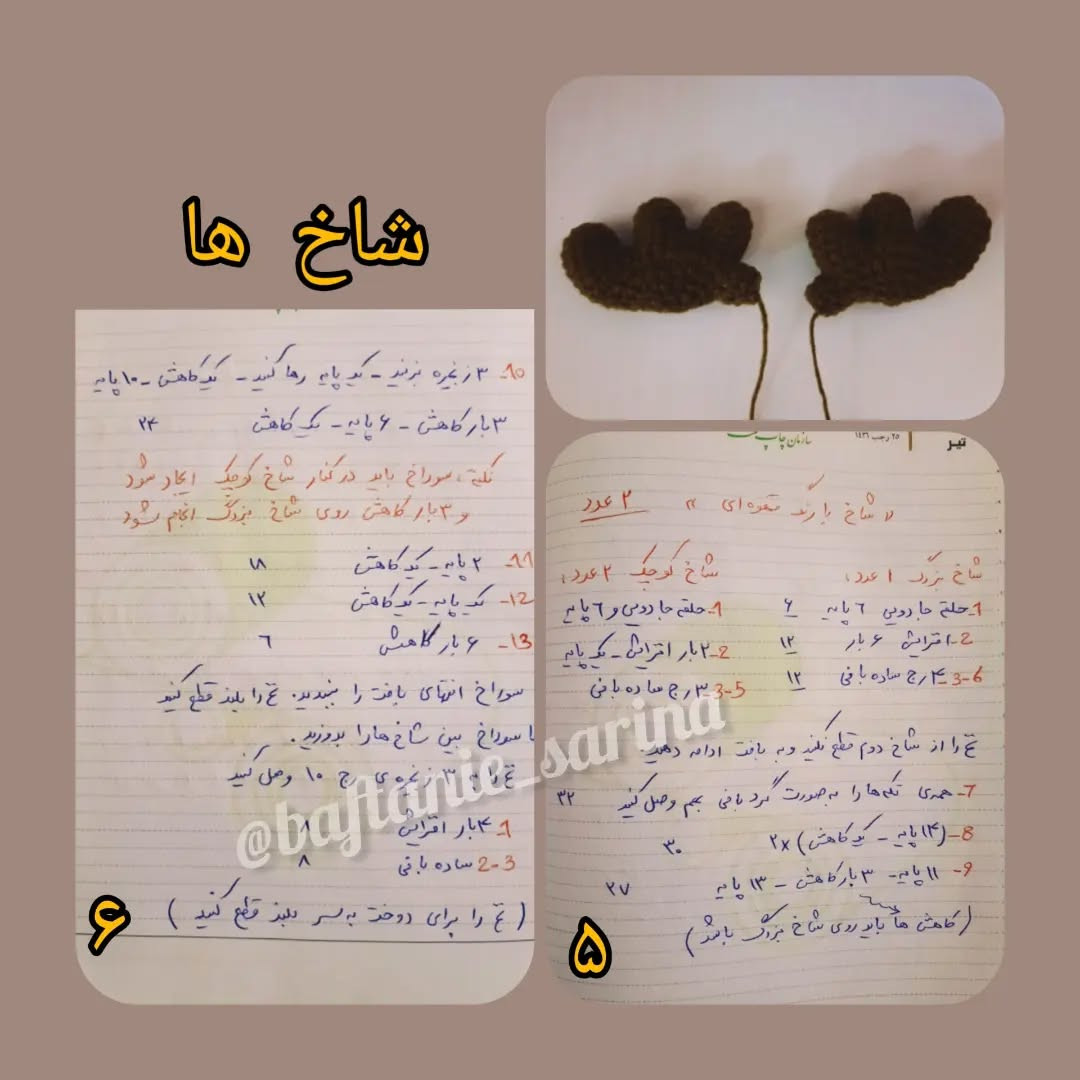 شاخ ها
تیر
۲۵ رجب ۱۴۳۱
سازمان چاپ
« شاخ با رنگ قهوه‌ای » ۲ عدد
شاخ بزرگ ۱ عدد:
1- حلقه جادویی ۶ پایه ۶
2- افزایش ۶ بار ۱۲
3-6- ۴ رج ساده بافی ۱۲
شاخ کوچک ۲ عدد:
1- حلقه جادویی و ۶ پایه
2- ۲ بار افزایش - یک پایه
3-5 ۳ رج ساده بافی
نخ را از شاخ دوم قطع نکنید و به بافت ادامه دهید
7- همه‌ی تکه‌ها را به‌صورت گرد بافی بهم وصل کنید ۳۲
8- (۱۴ پایه - یک کاهش) ×۲ ۳۰
9- ۱۱ پایه - ۳ بار کاهش - ۱۳ پایه ۲۷
(کاهش ها باید روی شاخ بزرگ باشد)
۵
10- ۳ زنجیره بزنید - یک پایه رها کنید - یک کاهش - ۱۰ پایه
۳ بار کاهش - ۶ پایه - یک کاهش ۲۴
نکته: سوراخ باید در کنار شاخ کوچک ایجاد شود
و ۳ بار کاهش روی شاخ بزرگ انجام شود
11- ۲ پایه - یک کاهش ۱۸
12- یک پایه - یک کاهش ۱۲
13- ۶ بار کاهش ۶
سوراخ انتهای بافت را ببندید. نخ را بلند قطع کنید
سوراخ بین شاخ ها را بدوزید.
نخ را ۳ زنجیره‌ی رج ۱۰ وصل کنید
1- ۴ بار افزایش ۸
2-3 ساده بافی ۸
(نخ را برای دوخت به سر بلند قطع کنید)
۶
@baftanie_sarina